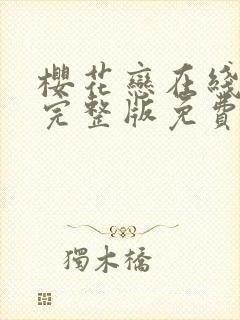 櫻花戀在线
完整版免費
獨木橋